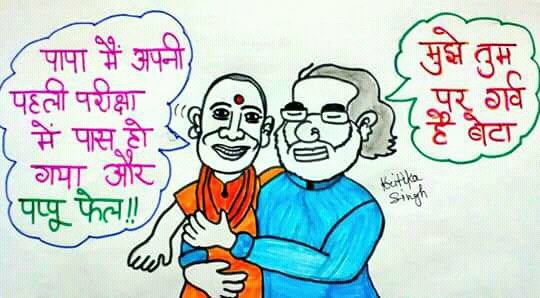 पापा मैं अपनी
पहली परीक्षा
में पास हो
गया और
पप्पू फेल!!
मुझे तुम
पर गर्व
है बेटा
Kritika
Singh